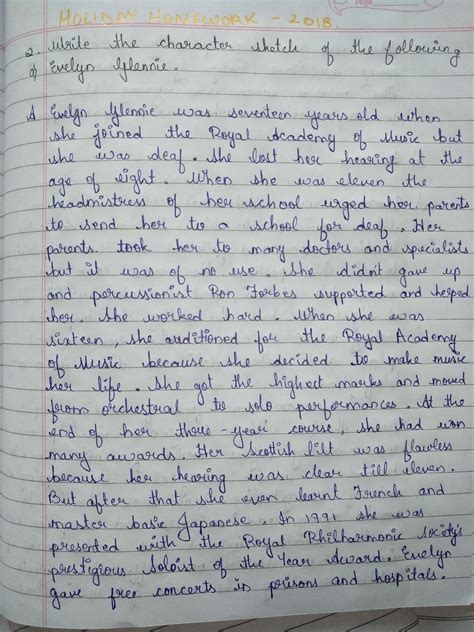 HOLIDAY HOMEWORK - 2018
2. Write the character sketch of the following
a) Evelyn Glennie.
A Evelyn Glennie was seventeen years old when
she joined the Royal Academy of Music but
she was deaf. She lost her hearing at the
age of eight. When she was eleven the
headmistress of her school urged her parents
to send her to a school for deaf. Her
parents took her to many doctors and specialists
but it was of no use. She didn't gave up
and percussionist Ron Forbes supported and helped
her. She worked hard. When she was
sixteen, she auditioned for the Royal Academy
of Music because she decided to make music
her life. She got the highest marks and moved
from orchestral to solo performances. At the
end of her three-year course, she had won
many awards. Her Scottish lilt was flawless
because her hearing was clear till eleven.
But after that she even learnt French and
master basic Japanese. In 1991 she was
presented with the Royal Philharmonic Society's
prestigious Soloist of the Year Award. Evelyn
gave free concerts in prisons and hospitals.